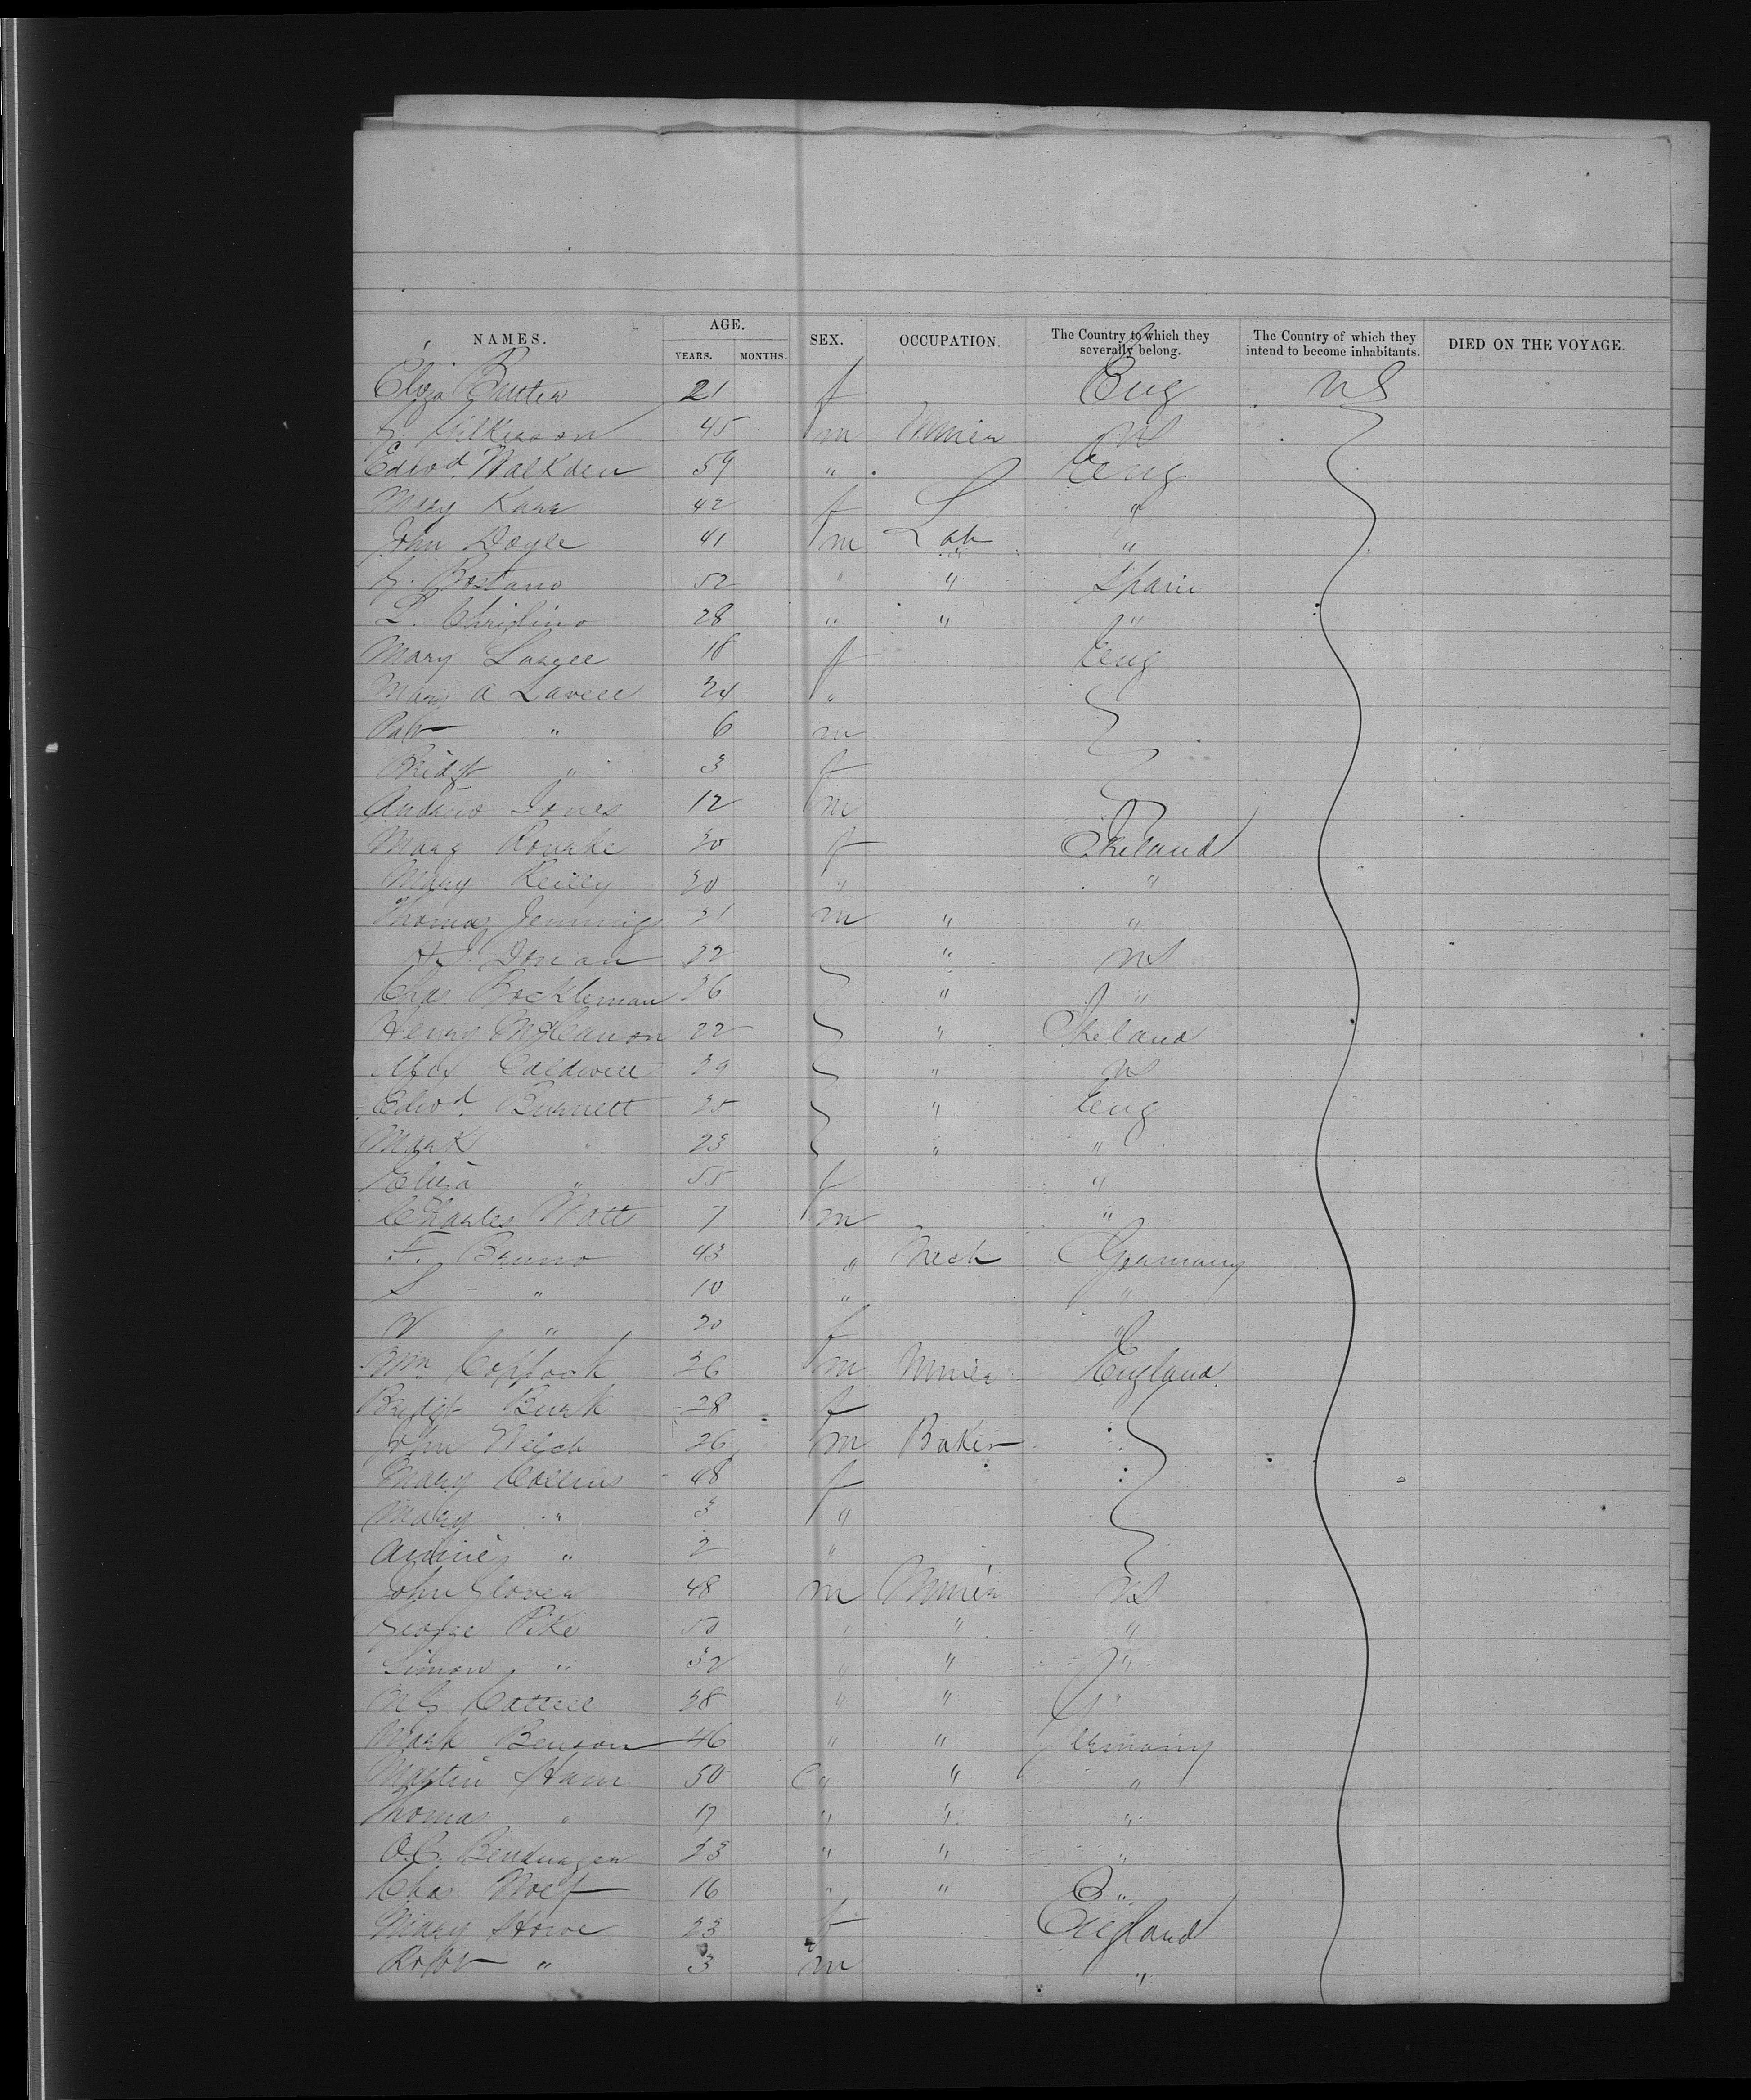 NAMES. AGE. SEX. OCCUPATION. The Country to which they severally belong. The Country of which they intend to become inhabitants. DIED ON THE VOYAGE.
YEARS. MONTHS.
Eliza 21 f Eng US
G. Wilkerson 45 m Miner US
Edwd. Walkden 59 " Eng
Mary Karr 42 f "
John Doyle 41 m Lab "
52 " " Spain
L. 28 " " "
Mary 18 f Eng
Mary A Lavell 24 "
Patr " 6 m
Bridgt " 3 f
Andrew Jones 12 m
Mary Rourke 30 f Ireland
Mary Reilly 30 " "
Thomas Jennings 21 m " "
Dorian 22 " US
Chas Bockleman 36 " "
Henry 22 " Ireland
Alex Caldwell 39 " US
Edwd. Burnett 35 " Eng
Mark " 23 " "
Eliza " 55 f "
Charles Watts 7 m "
F. Bruno 43 " Mech Germany
S " 10 " "
" 20 f "
Wm Coppock 36 m Miner England
Bridgt Burk 28 f
John Welch 26 m Baker
Mary Collins 48 f
Mary " 3 "
Annie " 2 "
John Glover 48 m Miner US
George Pike 50 " " "
Simon " 32 " " "
Cattell 38 " " "
Mark Benson 46 " " Germany
Martin Ham 50 " " "
Thomas " 17 " " "
O.C. 23 " " "
Chas Wolf 16 " " "
Mary Howe 23 f England
Robt " 3 m "